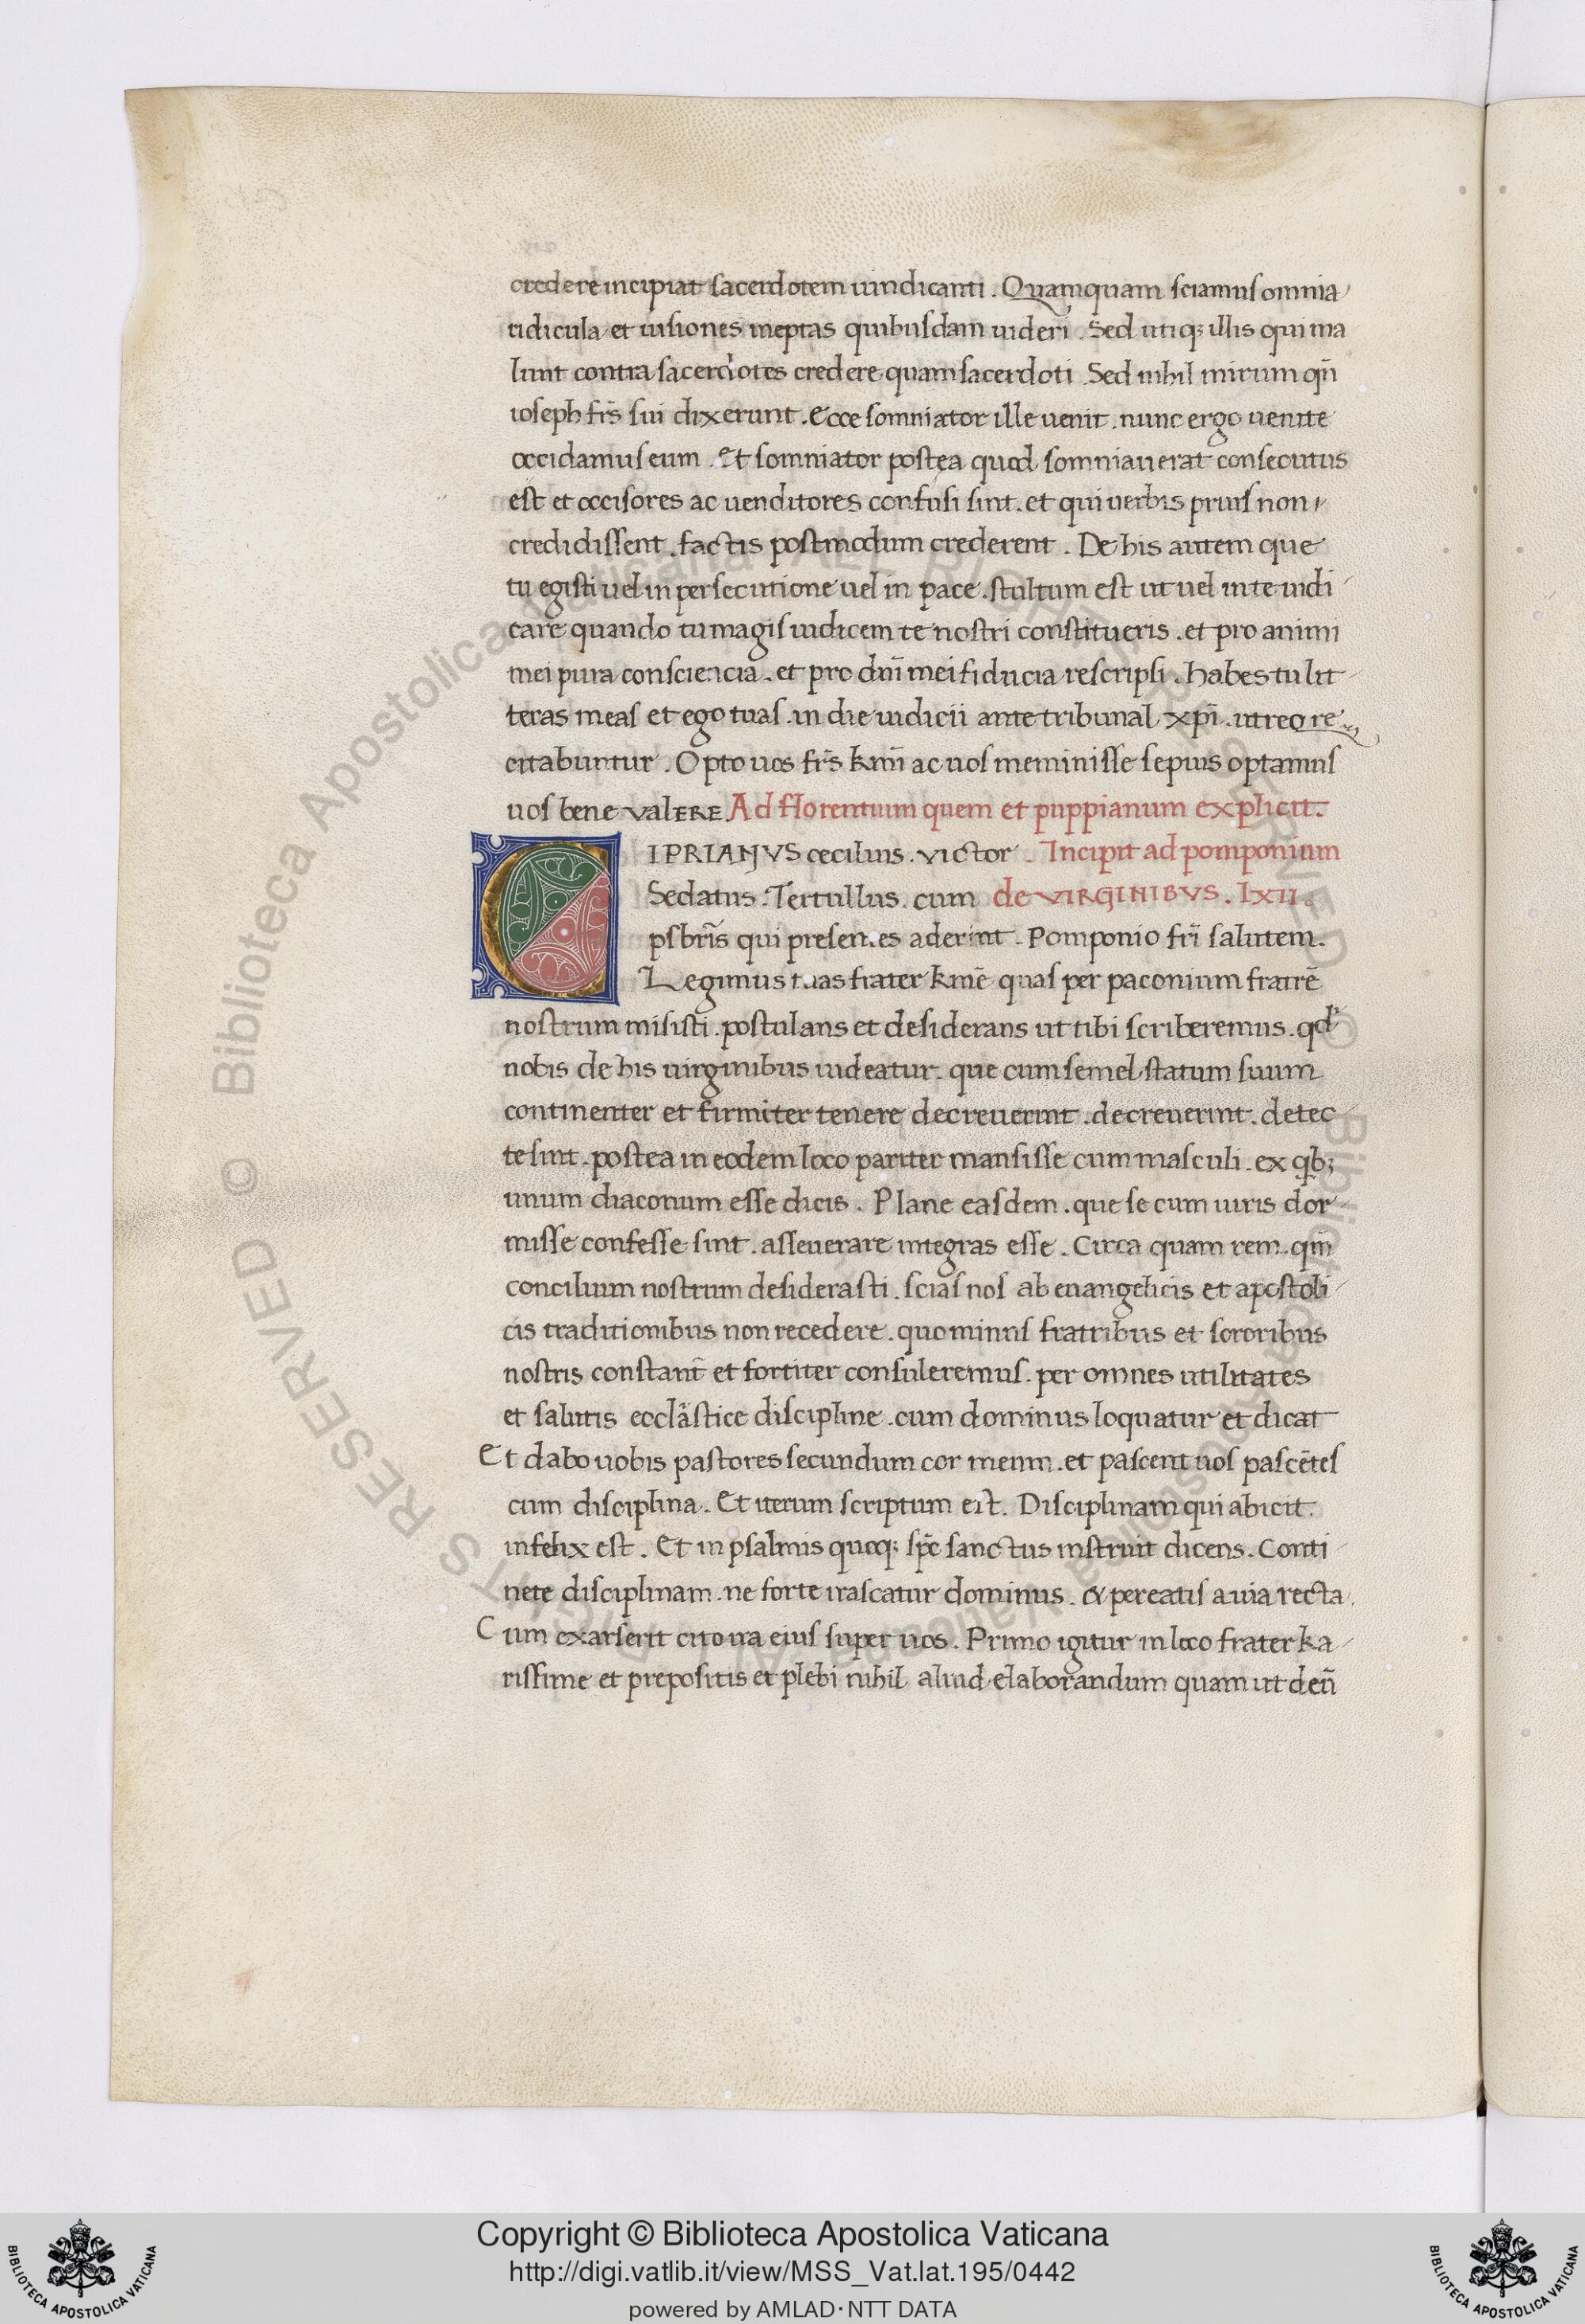 credere incipiat sacerdotem uindicanti. Quamquam sciamus omnia
ridicula et uisiones ineptas quibusdam uideri. Sed utiq; illis qui ma
lunt contra sacerdotes credere quam sacerdoti. Sed nihil mirum qn̄
ioseph fr̄s sui dixerunt. Ecce somniator ille uenit. nunc ergo uenite
occidamus eum. Et somniator postea quod somniauerat consecutus
est et occisores ac uenditores confusi sint. et qui uerbis prius non
credidissent. factis postmodum crederent. De his autem que
tu egisti uel in persecutione uel in pace. stultum est ut uel in te iudi
care quando tu magis iudicem te nostri constitueris. et pro animi
mei pura consciencia. et pro dn̄i mei fiducia rescripsi. habes tu lit
teras meas et ego tuas. in die iudicii ante tribunal xp̄i. utreq re
citabuntur. Opto uos fr̄s km̄i ac uos meminisse sepius optamus
uos bene valERE. Ad florentium quem et puppianum explicit.
CIPRIANVS cecilius. victor. Incipit ad pomponium
Sedatus. Tertullus. cum de VIRGINIBVS. lxii.
psbrīs qui presentes aderint. Pomponio fr̄i salutem.
Legimus tuas frater km̄e quas per paconium fratrē
nostrum misisti. postulans et desiderans ut tibi scriberemus. qd'
nobis de his uirginibus uideatur. que cum semel statum suum
continenter et firmiter tenere decreuerint. decreuerint. detec
te sint. postea in eodem loco pariter mansisse cum masculi. ex qb;
unum diaconum esse dicis. Plane easdem. que se cum uiris dor
misse confesse sint. asseuerare integras esse. Circa quam rem. qm̄
concilium nostrum desiderasti. scias nos ab euangelicis et apostoli
cis traditionibus non recedere. quominus fratribus et sororibus
nostris constant̄ et fortiter consuleremus. per omnes utilitates
et salutis ecclāstice discipline. cum dominus loquatur et dicat
Et dabo uobis pastores secundum cor meum. et pascent uos pascētes
cum disciplina. Et iterum scriptum est. Disciplinam qui abicit
infelix est. Et in psalmis quoq; sp̄c sanctus instruit dicens. Conti
nete disciplinam. ne forte irascatur dominus. & pereatis a uia recta.
Cum exarserit cito ira eius super uos. Primo igitur in loco frater ka
rissime et prepositis et plebi nihil aliud elaborandum quam ut deū
Biblioteca Apostolica Vaticana ALL RIGHTS RESERVED ©
Copyright © Biblioteca Apostolica Vaticana
http://digi.vatlib.it/view/MSS_Vat.lat.195/0442
powered by AMLAD·NTT DATA
BIBLIOTECA APOSTOLICA VATICANA
BIBLIOTECA APOSTOLICA VATICANA